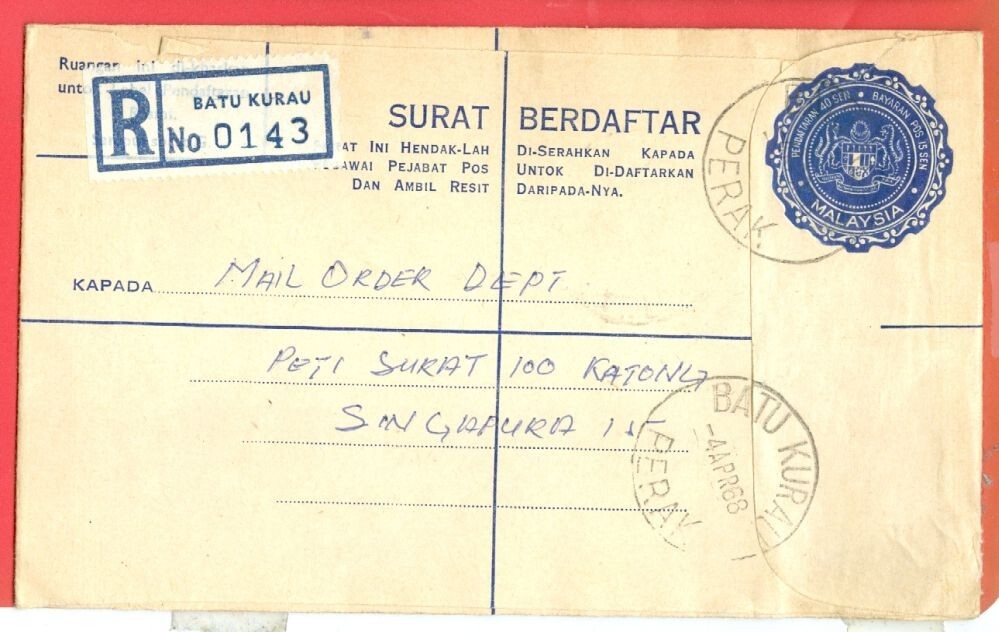 Ruangan ini di-
R
BATU KURAU
No 0143
SURAT BERDAFTAR
AT INI HENDAK-LAH DI-SERAHKAN KAPADA
AWAI PEJABAT POS UNTOK DI-DAFTARKAN
DAN AMBIL RESIT DARIPADA-NYA.
PENDAFTARAN 40 SEN • BAYARAN POS 15 SEN
MALAYSIA
PERAK.
KAPADA MAIL ORDER DEPT
PETI SURAT 100 KATONG
SINGAPURA 15
BATU KURAU
-4 APR 68
PERAK